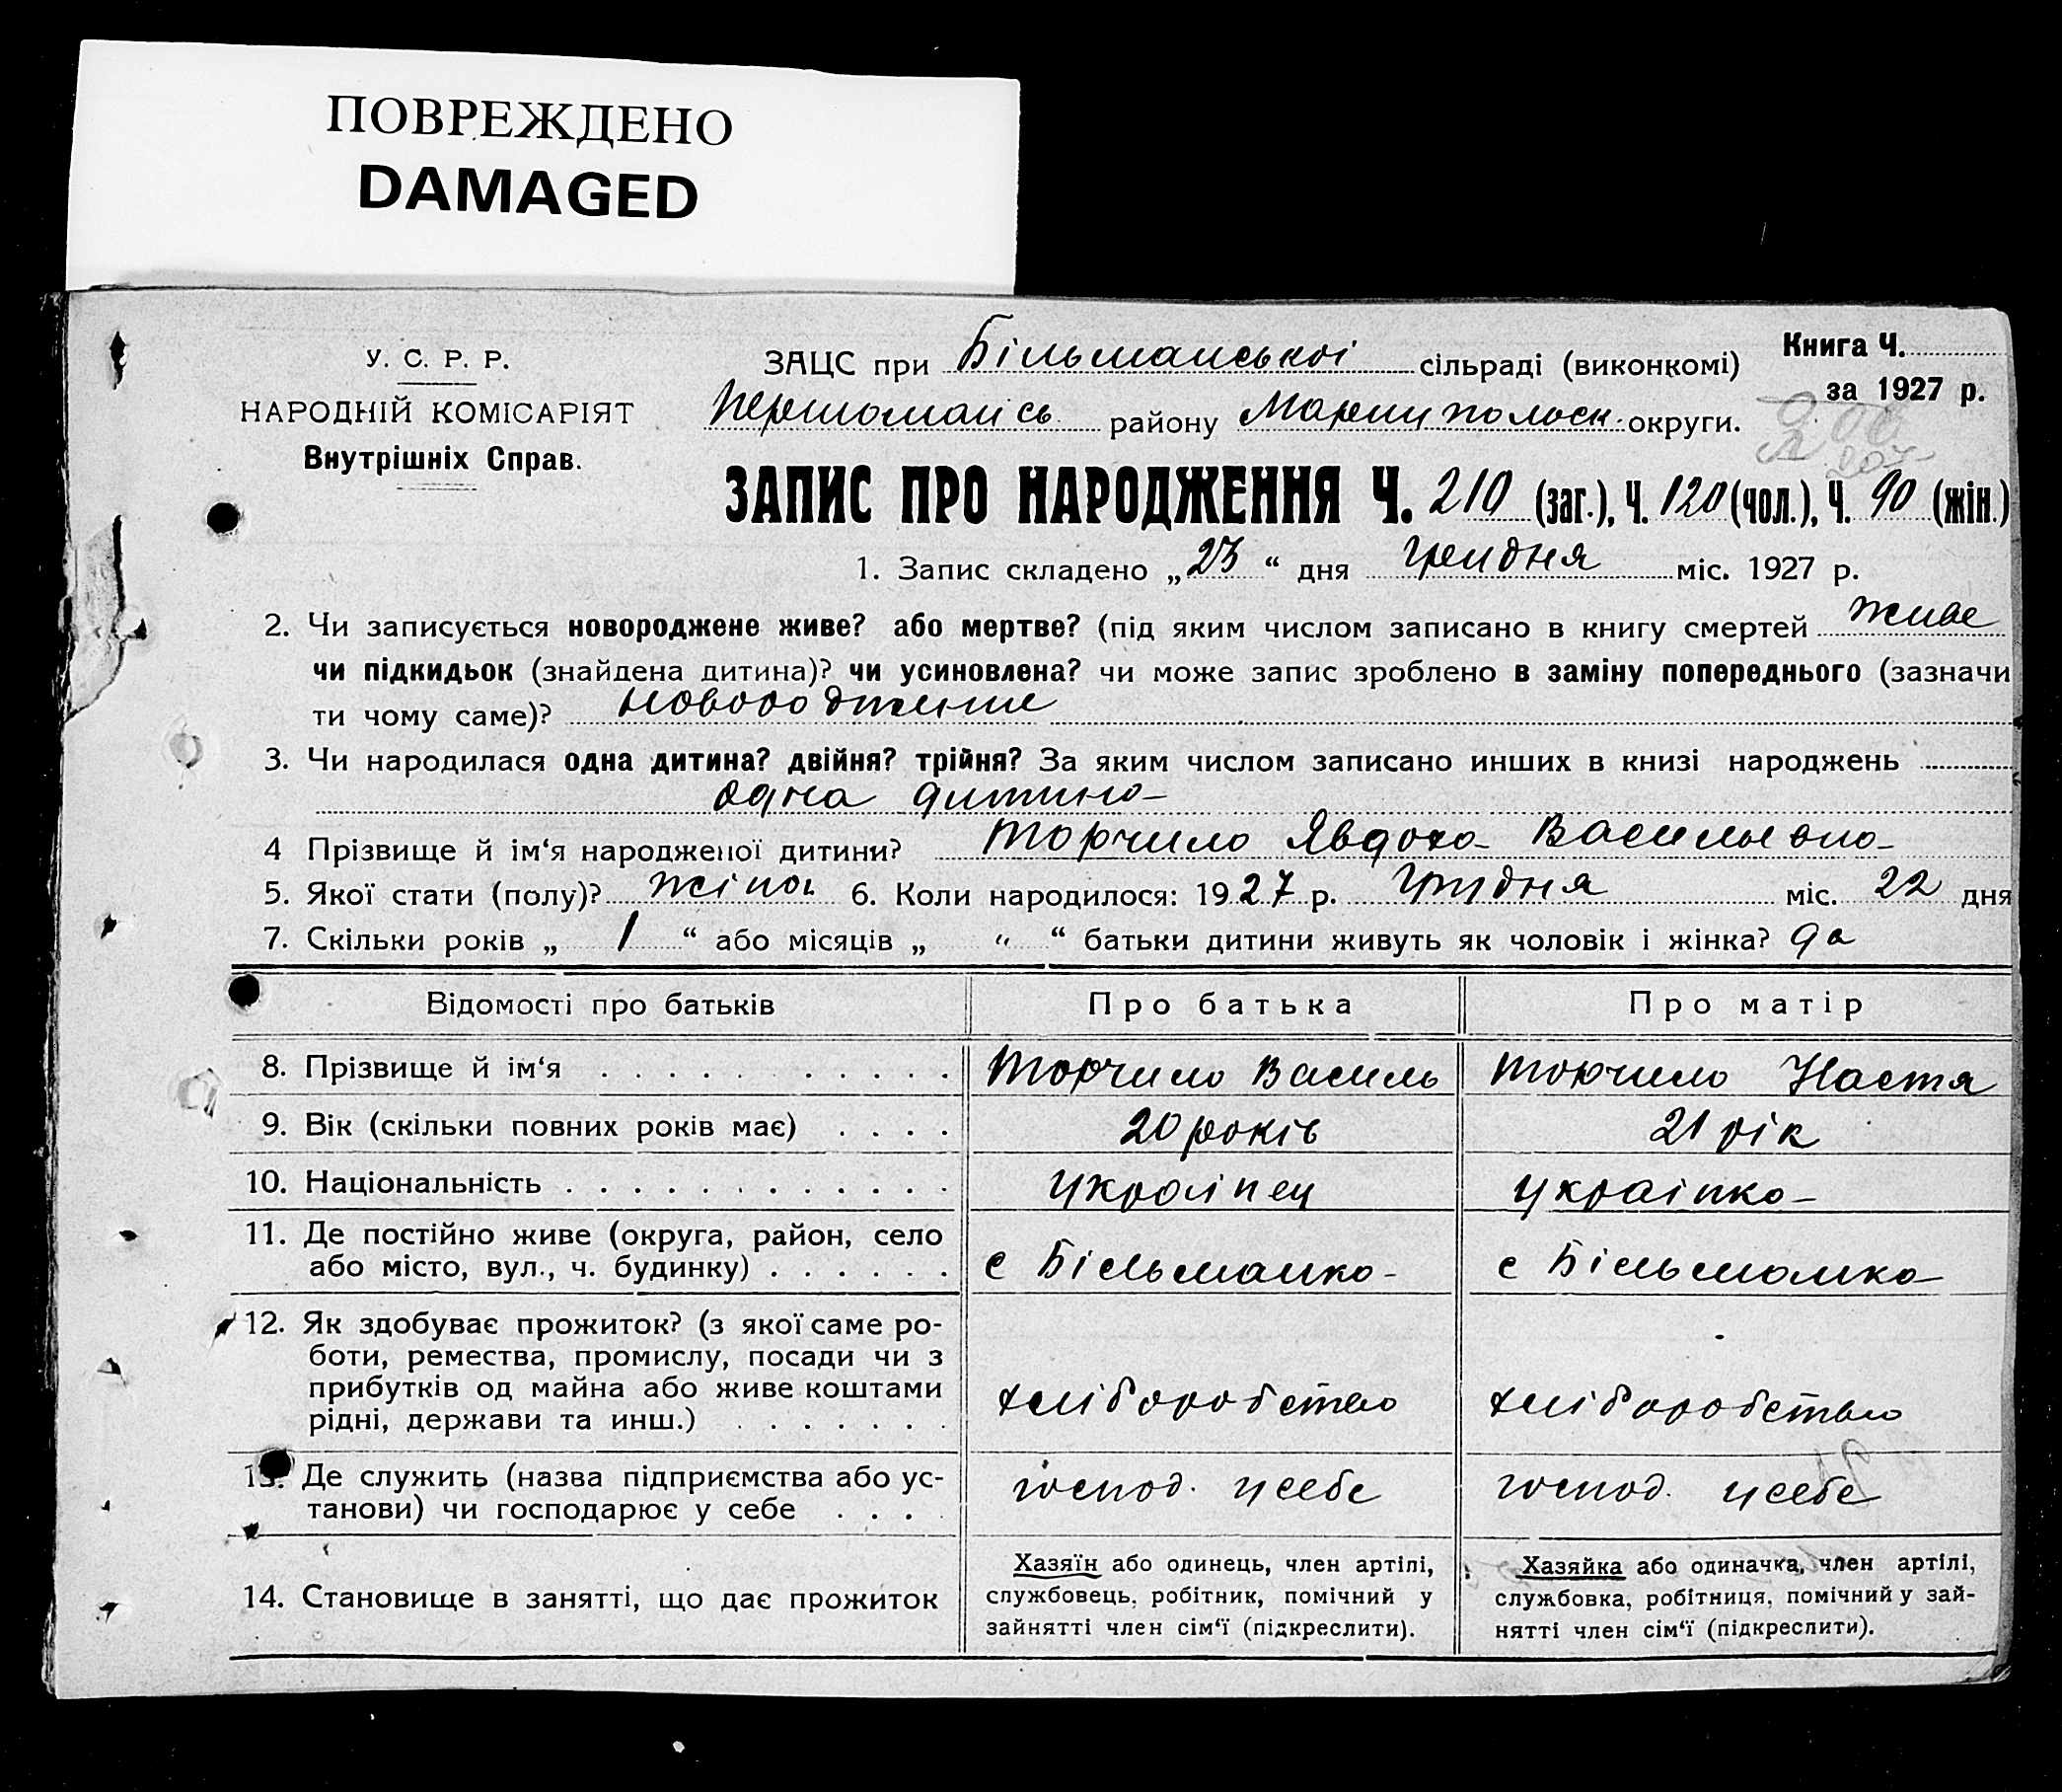 ПОВРЕЖДЕНО
DAMAGED
У. С. Р. Р.
НАРОДНІЙ КОМІСАРІЯТ
Внутрішніх Справ.
ЗАЦС при Більманської сільраді (виконкомі)
Першомайсь району Мариупольск. округи.
Книга Ч.
за 1927 р.
ЗАПИС ПРО НАРОДЖЕННЯ Ч. 210 (заг.), Ч. 120 (чол.), Ч. 90 (жін.)
1. Запис складено „23“ дня грудня міс. 1927 р.
2. Чи записується новороджене живе? або мертве? (під яким числом записано в книгу смертей живе
чи підкидьок (знайдена дитина)? чи усиновлена? чи може запис зроблено в заміну попереднього (зазначи
ти чому саме)? новородженне
3. Чи народилася одна дитина? двійня? трійня? За яким числом записано инших в книзі народжень
одна дитина
4 Прізвище й ім‘я народженої дитини? Торчило Явдоха Васильевна
5. Якої стати (полу)? жіноч 6. Коли народилося: 1927 р. Грудня міс. 22 дня
7. Скільки років „ 1 “ або місяців „ “ “ батьки дитини живуть як чоловік і жінка? да
Відомості про батьків Про батька Про матір
8. Прізвище й ім‘я Торчило Василь Торчило Настя
9. Вік (скільки повних років має) 20 років 21 рік
10. Національність українец українка
11. Де постійно живе (округа, район, село
або місто, вул., ч. будинку) с Більманка с Більманка
12. Як здобуває прожиток? (з якої саме ро-
боти, ремества, промислу, посади чи з
прибутків од майна або живе коштами
рідні, держави та инш.) хліборобство хліборобство
13. Де служить (назва підприємства або ус-
танови) чи господарює у себе господ. у себе господ. у себе
14. Становище в занятті, що дає прожиток
Хазяїн або одинець, член артілі,
службовець, робітник, помічний у
зайнятті член сім‘ї (підкреслити).
Хазяйка або одиначка, член артілі,
службовка, робітниця, помічний у зай-
нятті член сім‘ї (підкреслити).